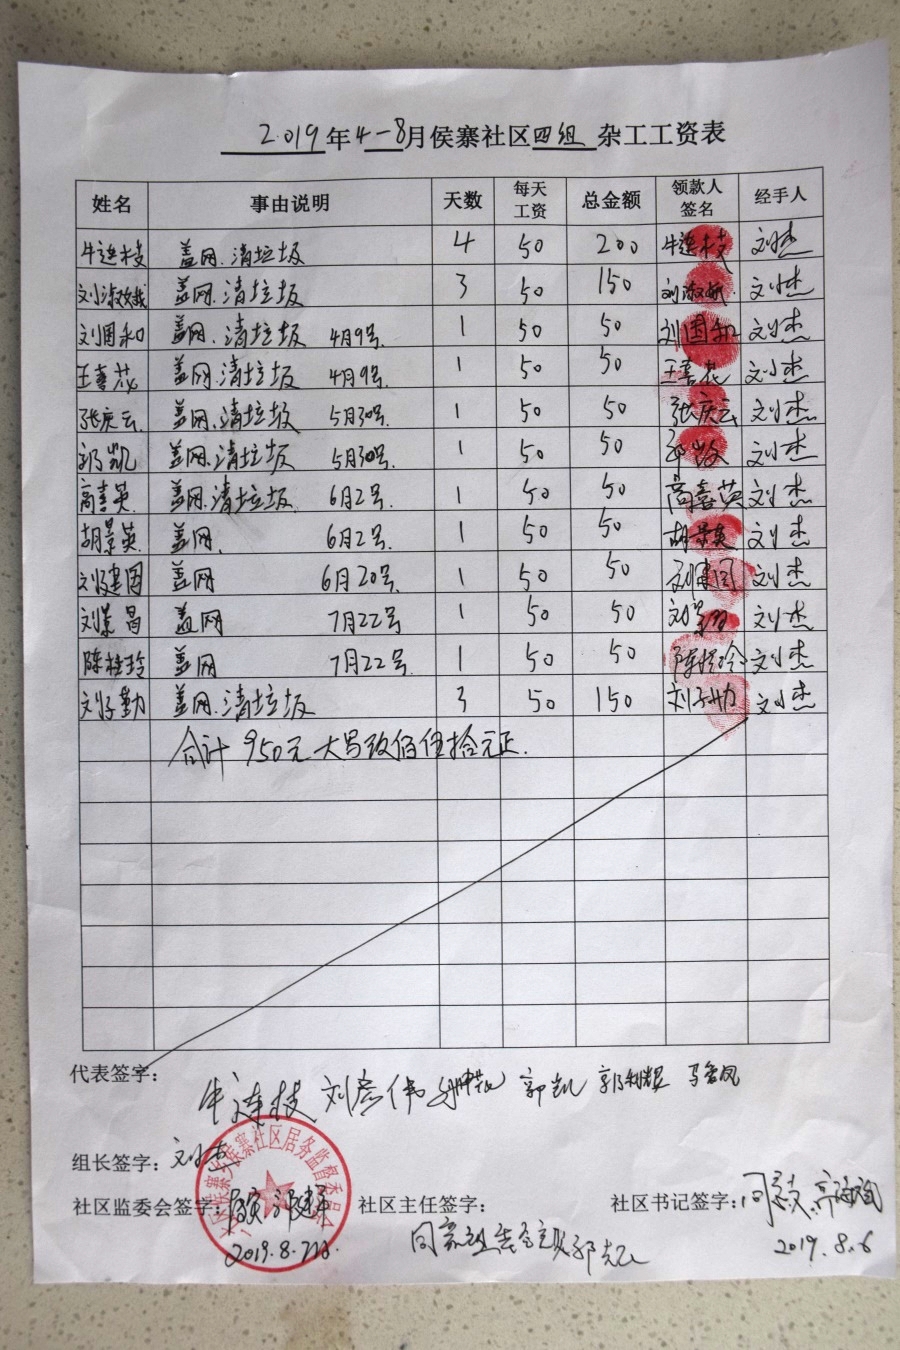 2019年4-8月侯寨社区四组杂工工资表
姓名 事由说明 天数 每天工资 总金额 领款人签名 经手人
牛连枝 盖网.清垃圾 4 50 200 牛连枝 刘杰
刘淑娥 盖网.清垃圾 3 50 150 刘淑娥 刘杰
刘国和 盖网.清垃圾 4月9号. 1 50 50 刘国和 刘杰
王喜花 盖网.清垃圾 4月9号. 1 50 50 王喜花 刘杰
张庆云 盖网.清垃圾 5月30号. 1 50 50 张庆云 刘杰
郭凯 盖网.清垃圾 5月30号. 1 50 50 刘杰
高喜英 盖网.清垃圾. 6月2号. 1 50 50 高喜英 刘杰
胡景英 盖网. 6月2号. 1 50 50 胡景英 刘杰
刘建国 盖网 6月20号 1 50 50 刘建国 刘杰
刘景昌 盖网 7月22号 1 50 50 刘景昌 刘杰
陈桂玲 盖网 7月22号. 1 50 50 陈桂玲 刘杰
刘子勤 盖网.清垃圾 3 50 150 刘子勤 刘杰
合计 950元 大写玖佰伍拾元正.
代表签字:
牛连枝 刘彦伟 郭凯
组长签字: 刘杰
社区监委会签字: 社区主任签字: 社区书记签字:
侯寨社区居务监督委员会
2019.8.6